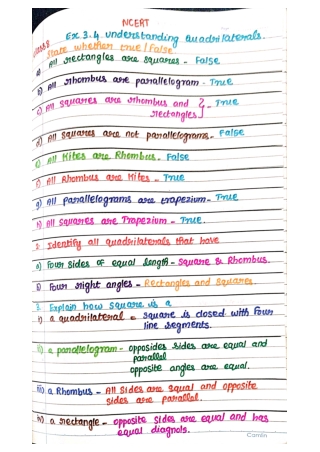 NCERT
Ex 3.4 understanding Quadrilaterals.
State whether true/False
a) All rectangles are squares - False
b) All rhombus are parallelogram - True
c) All squares are rhombus and rectangles } - True
d) All squares are not parallelograms - False
e) All Kites are Rhombus - False
f) All Rhombus are Kites - True
g) All parallelograms are trapezium - True
h) All Squares are Trapezium - True.
2. Identify all quadrilaterals that have
a) Four sides of equal length - Square & Rhombus.
b) Four right angles - Rectangles and Squares.
3. Explain how square is a
i) a quadrilateral = square is closed with four
line segments.
ii) a parallelogram - opposides sides are equal and
parallel
opposite angles are equal.
iii) a Rhombus - All Sides are equal and opposite
sides are parallel.
iv) a rectangle - opposite sides are equal and has
equal diagnols.